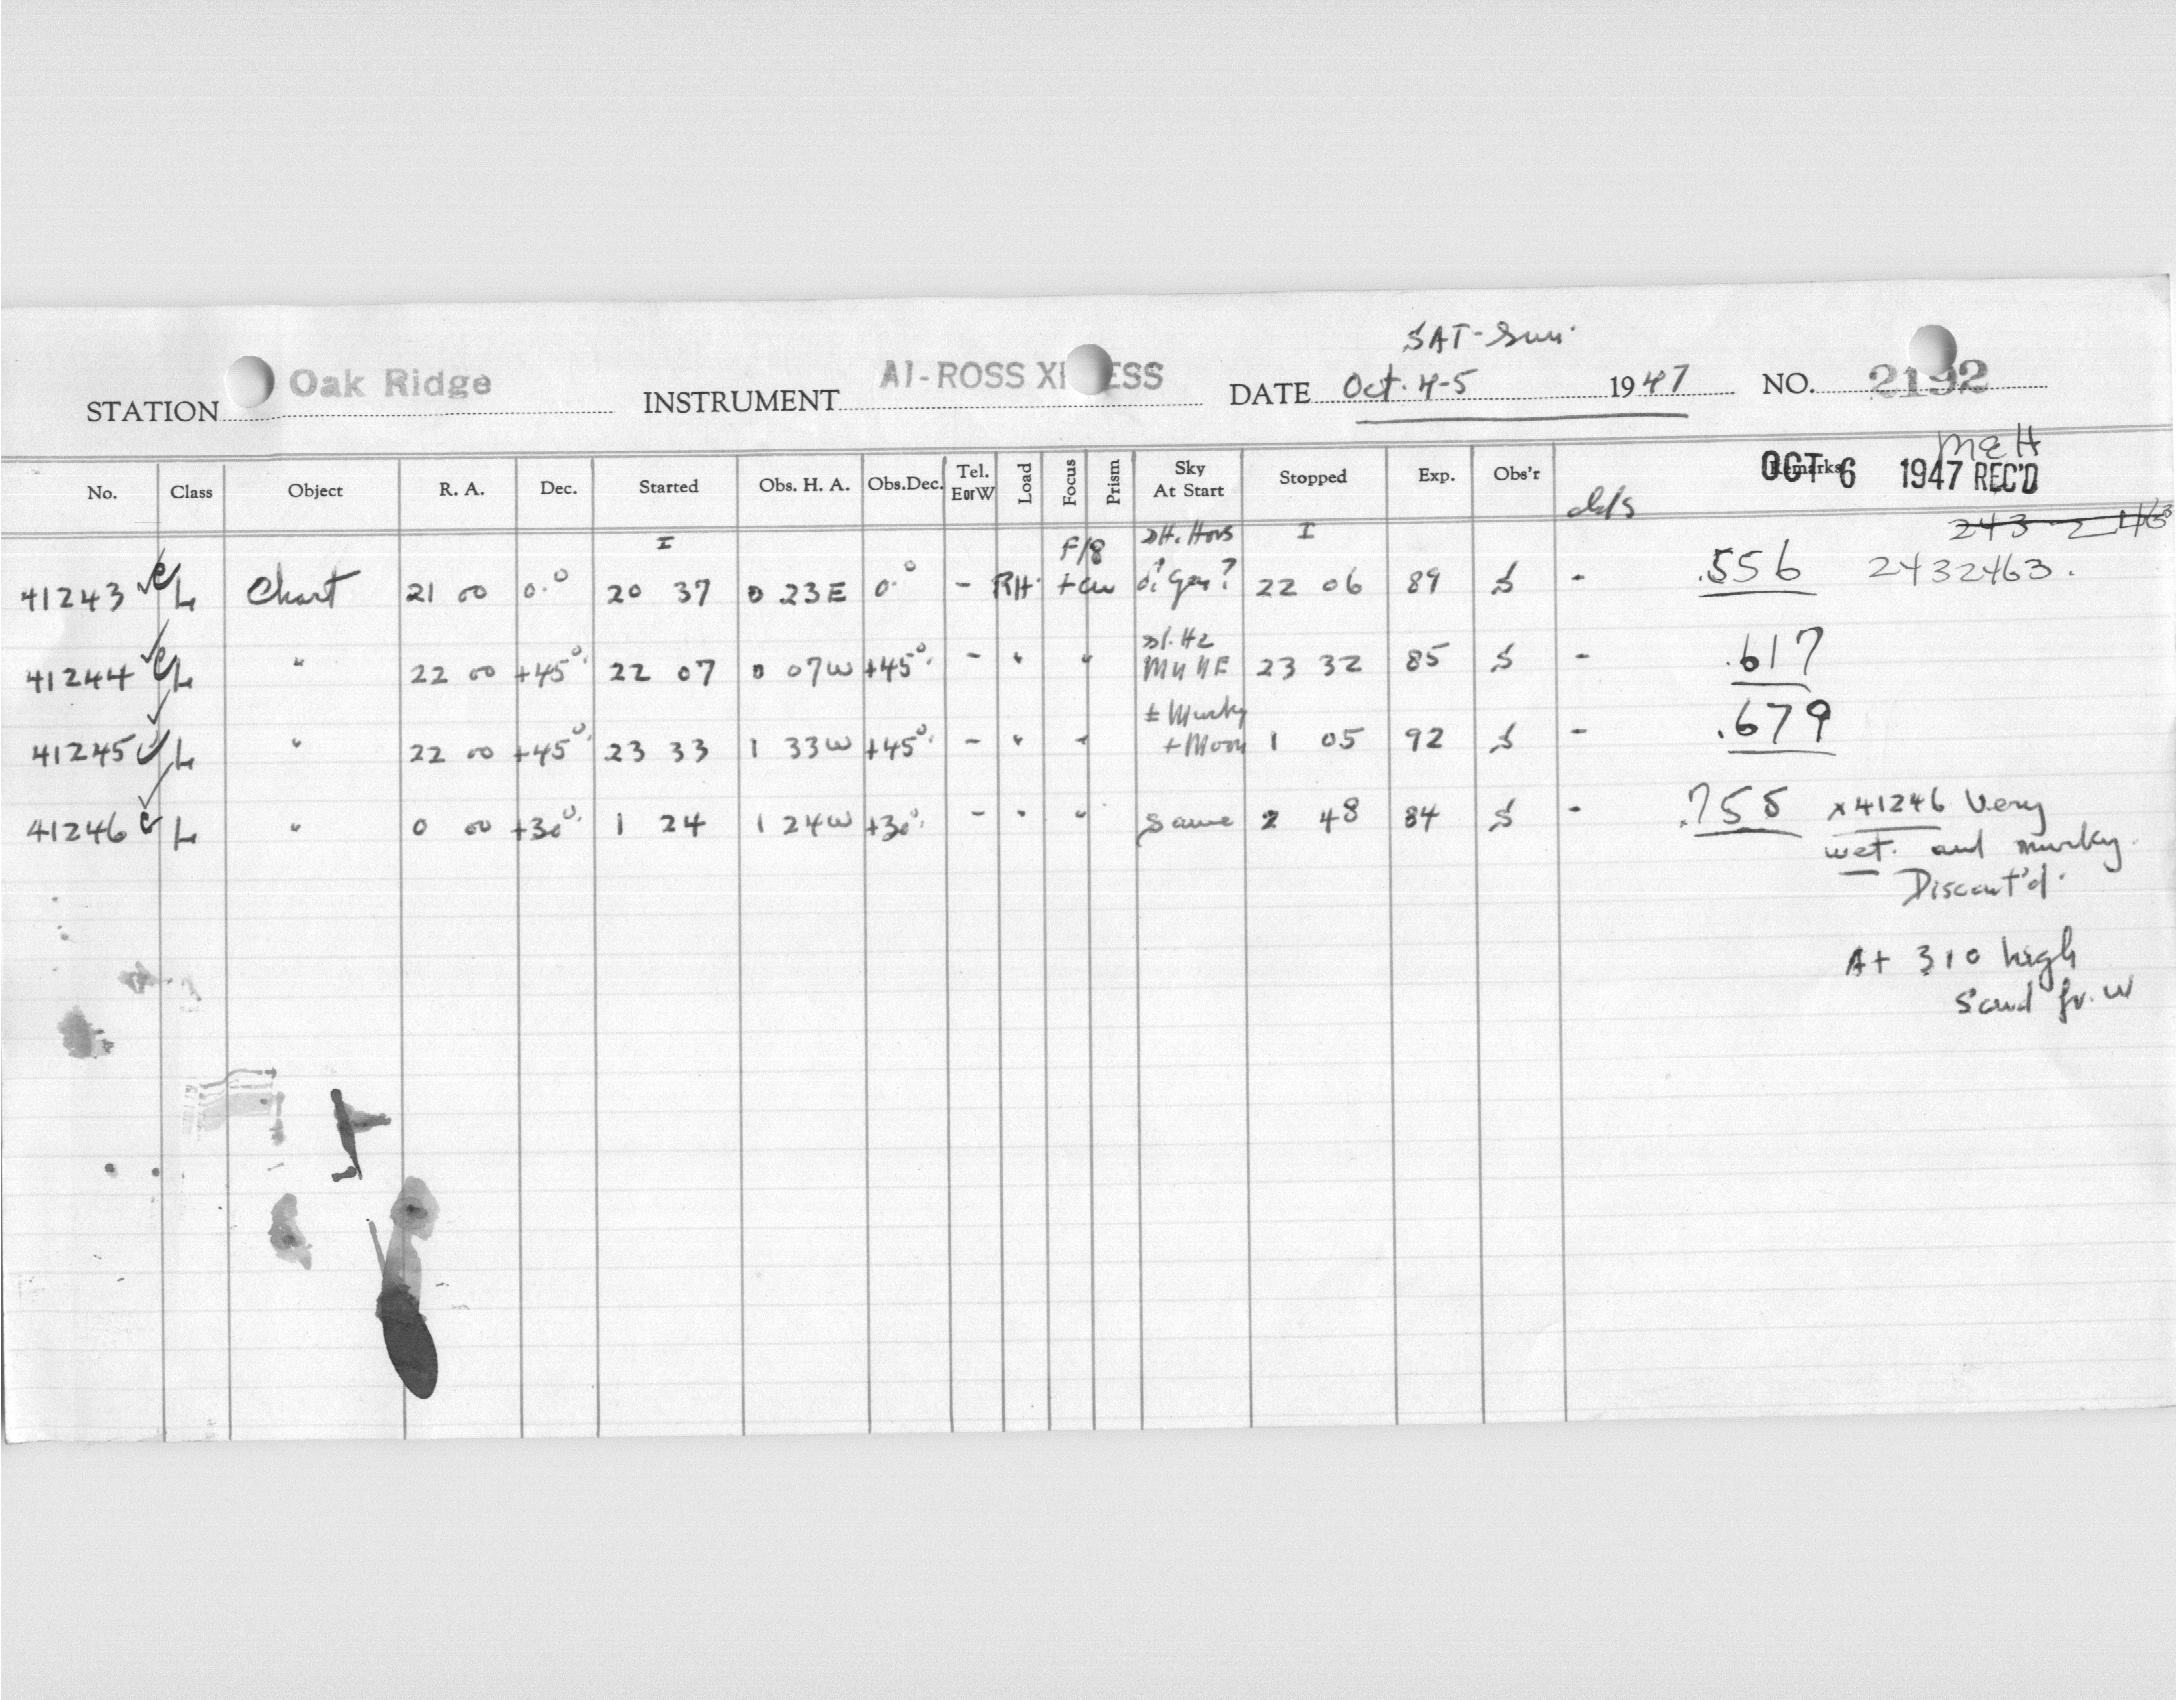 SAT-Sun.
STATION Oak Ridge INSTRUMENT AI-ROSS ESS DATE Oct. 4-5 1947 NO. 2192
M&H
OCT 6 1947 REC'D
No. Class Object R. A. Dec. Started Obs. H. A. Obs.Dec. Tel. E or W Load Focus Prism Sky At Start Stopped Exp. Obs'r Remarks
243 2463
I F/8 I
41243 L Chart 21 00 0.° 20 37 0 23E 0.° - RH. 22 06 89 S - .556 2432463.
sl. Hz
41244 L " 22 00 +45° 22 07 0 07W +45° - " " 23 32 85 S - .617
± Murky
41245 L " 22 00 +45° 23 33 1 33W +45° - " " + Moon 1 05 92 S - .679
41246 L " 0 00 +30° 1 24 1 24W +30° - " " Same 2 48 84 S - .755 x41246 Very
wet. and murky.
Discont'd.
At 310 high
Scud fr. W